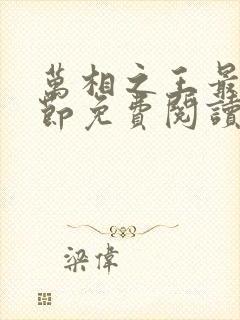 萬相之王最
節免費閱讀
梁偉